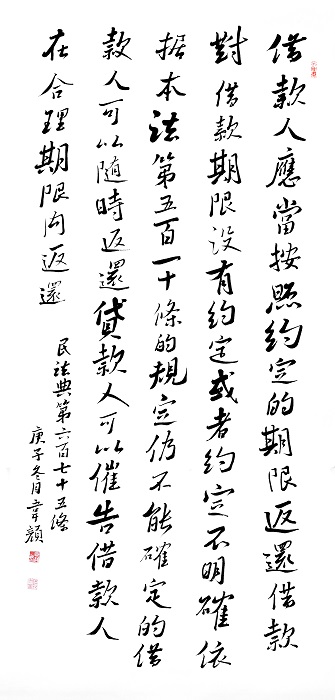 借款人應當按照約定的期限返還借款
對借款期限没有約定或者約定不明確依
据本法第五百一十條的規定仍不能確定的借
款人可以随時返還貸款人可以催告借款人
在合理期限内返還
民法典第六百七十五條
庚子冬月韋頠